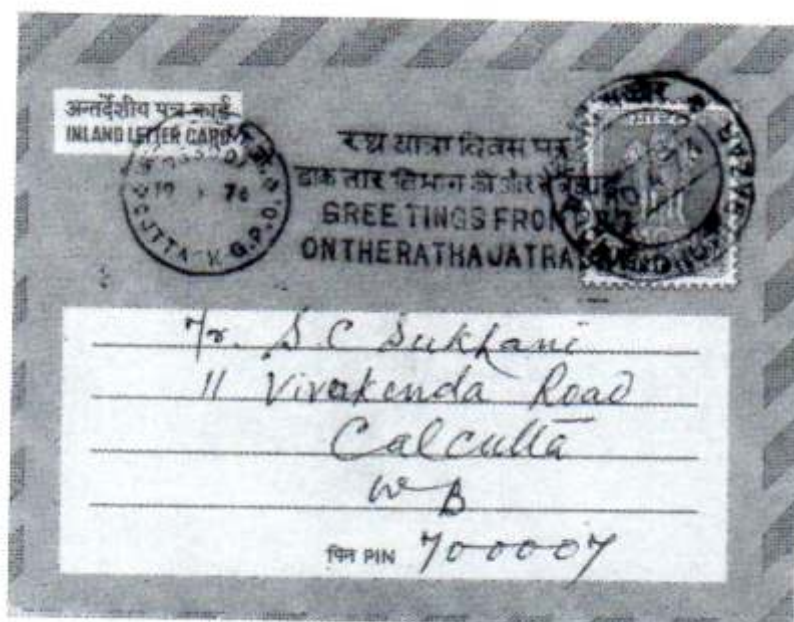 अन्तर्देशीय पत्र कार्ड
INLAND LETTER CARD
CUTTACK G.P.O.
रथ यात्रा दिवस पर
डाक तार विभाग की ओर से
GREETINGS FROM P&T
ON THE RATHA JATRA
Mr. S. C Sukhani
11 Vivekenda Road
Calcutta
W B
पिन PIN 700007